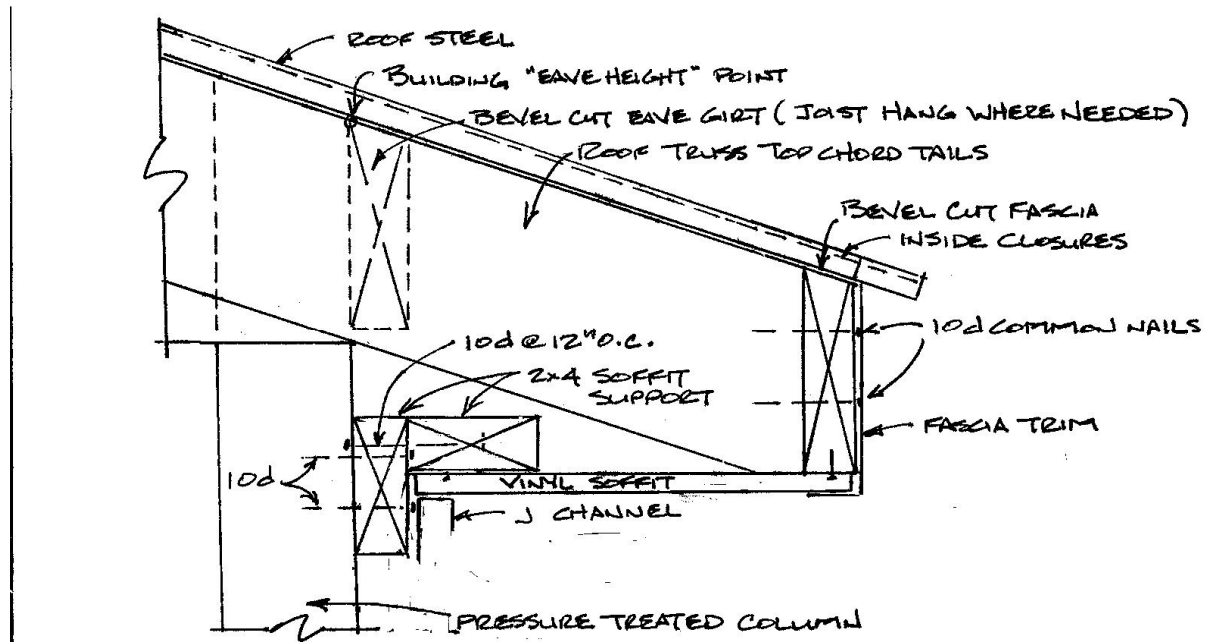 ROOF STEEL
BUILDING "EAVE HEIGHT" POINT
BEVEL CUT EAVE GIRT (JOIST HANG WHERE NEEDED)
ROOF TRUSS TOP CHORD TAILS
BEVEL CUT FASCIA
INSIDE CLOSURES
10d COMMON NAILS
10d @ 12" O.C.
2x4 SOFFIT
SUPPORT
FASCIA TRIM
10d
VINYL SOFFIT
J CHANNEL
PRESSURE TREATED COLUMN